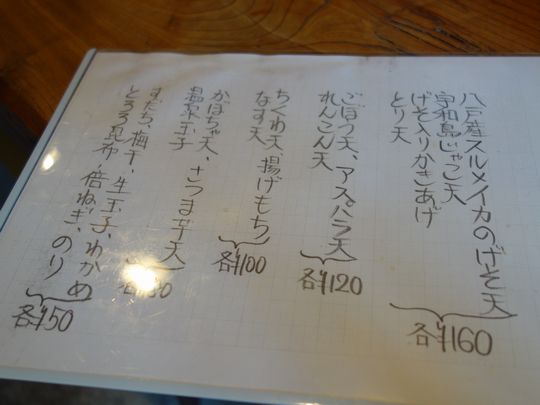 八戸産スルメイカのげそ天
宇和島じゃこ天
げそ入りかきあげ
とり天
各¥160
ごぼう天、アスパラ天
れんこん天
各¥120
ちくわ天、揚げもち
なす天
各¥100
かぼちゃ天、さつま芋天
温泉玉子
すだち、梅干、生玉子、わかめ
とろろ昆布、倍ねぎ、のり
各¥50